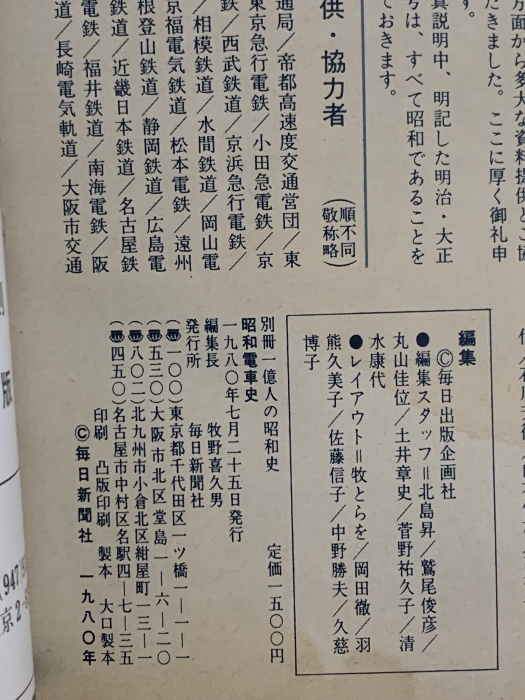 方面から多大な資料提供、ご協
だきました。ここに厚く御礼申
す。
真説明中、明記した明治・大正
号は、すべて昭和であることを
ておきます。
供・協力者
(順不同
敬称略)
通局/帝都高速度交通営団/東
東京急行電鉄/小田急電鉄/京
鉄/西武鉄道/京浜急行電鉄/
/相模鉄道/水間鉄道/岡山電
京福電気鉄道/松本電鉄/遠州
根登山鉄道/静岡鉄道/広島電
鉄道/近畿日本鉄道/名古屋鉄
電鉄/福井鉄道/南海電鉄/阪
道/長崎電気軌道/大阪市交通
編集
©毎日出版企画社
●編集スタッフ=北島昇/鷲尾俊彦/
丸山佳位/土井章史/菅野祐久子/清
水康代
●レイアウト=牧とらを/岡田徹/羽
熊久美子/佐藤信子/中野勝夫/久慈
博子
別冊一億人の昭和史
昭和電車史 定価一五〇〇円
一九八〇年七月二十五日発行
編集長 牧野喜久男
発行所 毎日新聞社
(〒一〇〇)東京都千代田区一ツ橋一-一-一
(〒五三〇)大阪市北区堂島一-六-二〇
(〒八〇二)北九州市小倉北区紺屋町一三-一
(〒四五〇)名古屋市中村区名駅四-七-三五
印刷 凸版印刷 製本 大口製本
©毎日新聞社 一九八〇年
版